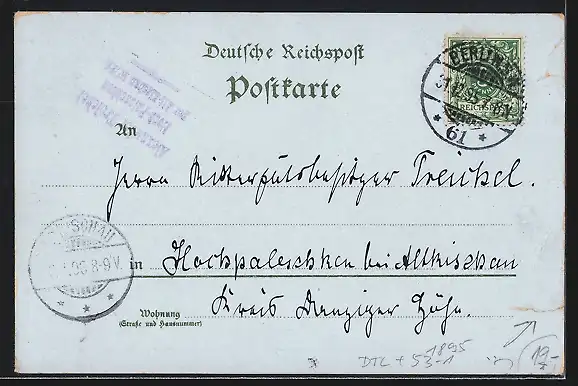 Deutsche Reichspost
Postkarte
An
Herrn Rittergutsbesitzer Treichel.
in Hochpaleschken bei Altkischau
Kreis Danziger Höhe.
Wohnung
(Straße und Hausnummer)
BERLIN
61
REICHSPOST
SCHAU
95 8-9 V.
1895
DTL + 53-1
12.-